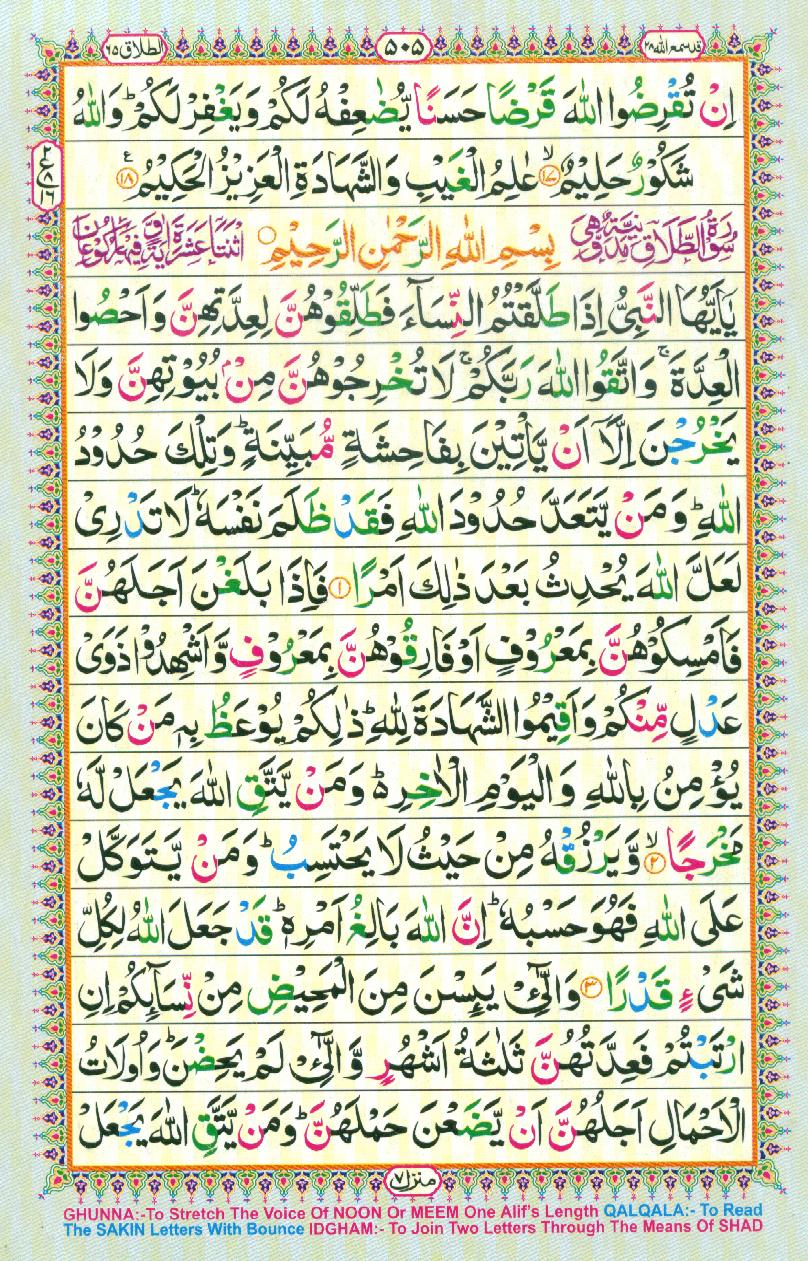 قد سمع الله ٢٨ ٥٠٥ الطلاق ٦٥
اِنْ تُقْرِضُوا اللّٰهَ قَرْضًا حَسَنًا يُّضٰعِفْهُ لَكُمْ وَيَغْفِرْ لَكُمْ ؕ وَاللّٰهُ
شَكُوْرٌ حَلِيْمٌ ۙ﴿۱۷﴾ عٰلِمُ الْغَيْبِ وَالشَّهَادَةِ الْعَزِيْزُ الْحَكِيْمُ ﴿۱۸﴾
ع
٢
٨
١٦
سُوْرَةُ الطَّلَاقِ مَدَنِيَّةٌ وَّهِيَ بِسْمِ اللّٰهِ الرَّحْمٰنِ الرَّحِيْمِ اثْنَتَا عَشْرَةَ اٰيَةً وَّفِيْهَا رُكُوْعَانِ
يٰۤاَيُّهَا النَّبِىُّ اِذَا طَلَّقْتُمُ النِّسَآءَ فَطَلِّقُوْهُنَّ لِعِدَّتِهِنَّ وَاَحْصُوا
الْعِدَّةَ ۚ وَاتَّقُوا اللّٰهَ رَبَّكُمْ ۚ لَا تُخْرِجُوْهُنَّ مِنْۢ بُيُوْتِهِنَّ وَلَا
يَخْرُجْنَ اِلَّاۤ اَنْ يَّاْتِيْنَ بِفَاحِشَةٍ مُّبَيِّنَةٍ ؕ وَتِلْكَ حُدُوْدُ
اللّٰهِ ؕ وَمَنْ يَّتَعَدَّ حُدُوْدَ اللّٰهِ فَقَدْ ظَلَمَ نَفْسَهٗ ؕ لَا تَدْرِىْ
لَعَلَّ اللّٰهَ يُحْدِثُ بَعْدَ ذٰلِكَ اَمْرًا ﴿۱﴾ فَاِذَا بَلَغْنَ اَجَلَهُنَّ
فَاَمْسِكُوْهُنَّ بِمَعْرُوْفٍ اَوْ فَارِقُوْهُنَّ بِمَعْرُوْفٍ وَّاَشْهِدُوْا ذَوَىْ
عَدْلٍ مِّنْكُمْ وَاَقِيْمُوا الشَّهَادَةَ لِلّٰهِ ؕ ذٰلِكُمْ يُوْعَظُ بِهٖ مَنْ كَانَ
يُؤْمِنُ بِاللّٰهِ وَالْيَوْمِ الْاٰخِرِ ؕ۬ وَمَنْ يَّتَّقِ اللّٰهَ يَجْعَلْ لَّهٗ
مَخْرَجًا ۙ﴿۲﴾ وَّيَرْزُقْهُ مِنْ حَيْثُ لَا يَحْتَسِبُ ؕ وَمَنْ يَّتَوَكَّلْ
عَلَى اللّٰهِ فَهُوَ حَسْبُهٗ ؕ اِنَّ اللّٰهَ بَالِغُ اَمْرِهٖ ؕ قَدْ جَعَلَ اللّٰهُ لِكُلِّ
شَىْءٍ قَدْرًا ﴿۳﴾ وَالّٰٓـئِْ يَٮِٕسْنَ مِنَ الْمَحِيْضِ مِنْ نِّسَآٮِٕكُمْ اِنِ
ارْتَبْتُمْ فَعِدَّتُهُنَّ ثَلٰثَةُ اَشْهُرٍ وَّالّٰٓـئِْ لَمْ يَحِضْنَ ؕ وَاُولَاتُ
الْاَحْمَالِ اَجَلُهُنَّ اَنْ يَّضَعْنَ حَمْلَهُنَّ ؕ وَمَنْ يَّتَّقِ اللّٰهَ يَجْعَلْ
منزل ٧
GHUNNA:-To Stretch The Voice Of NOON Or MEEM One Alif's Length QALQALA:- To Read
The SAKIN Letters With Bounce IDGHAM:- To Join Two Letters Through The Means Of SHAD